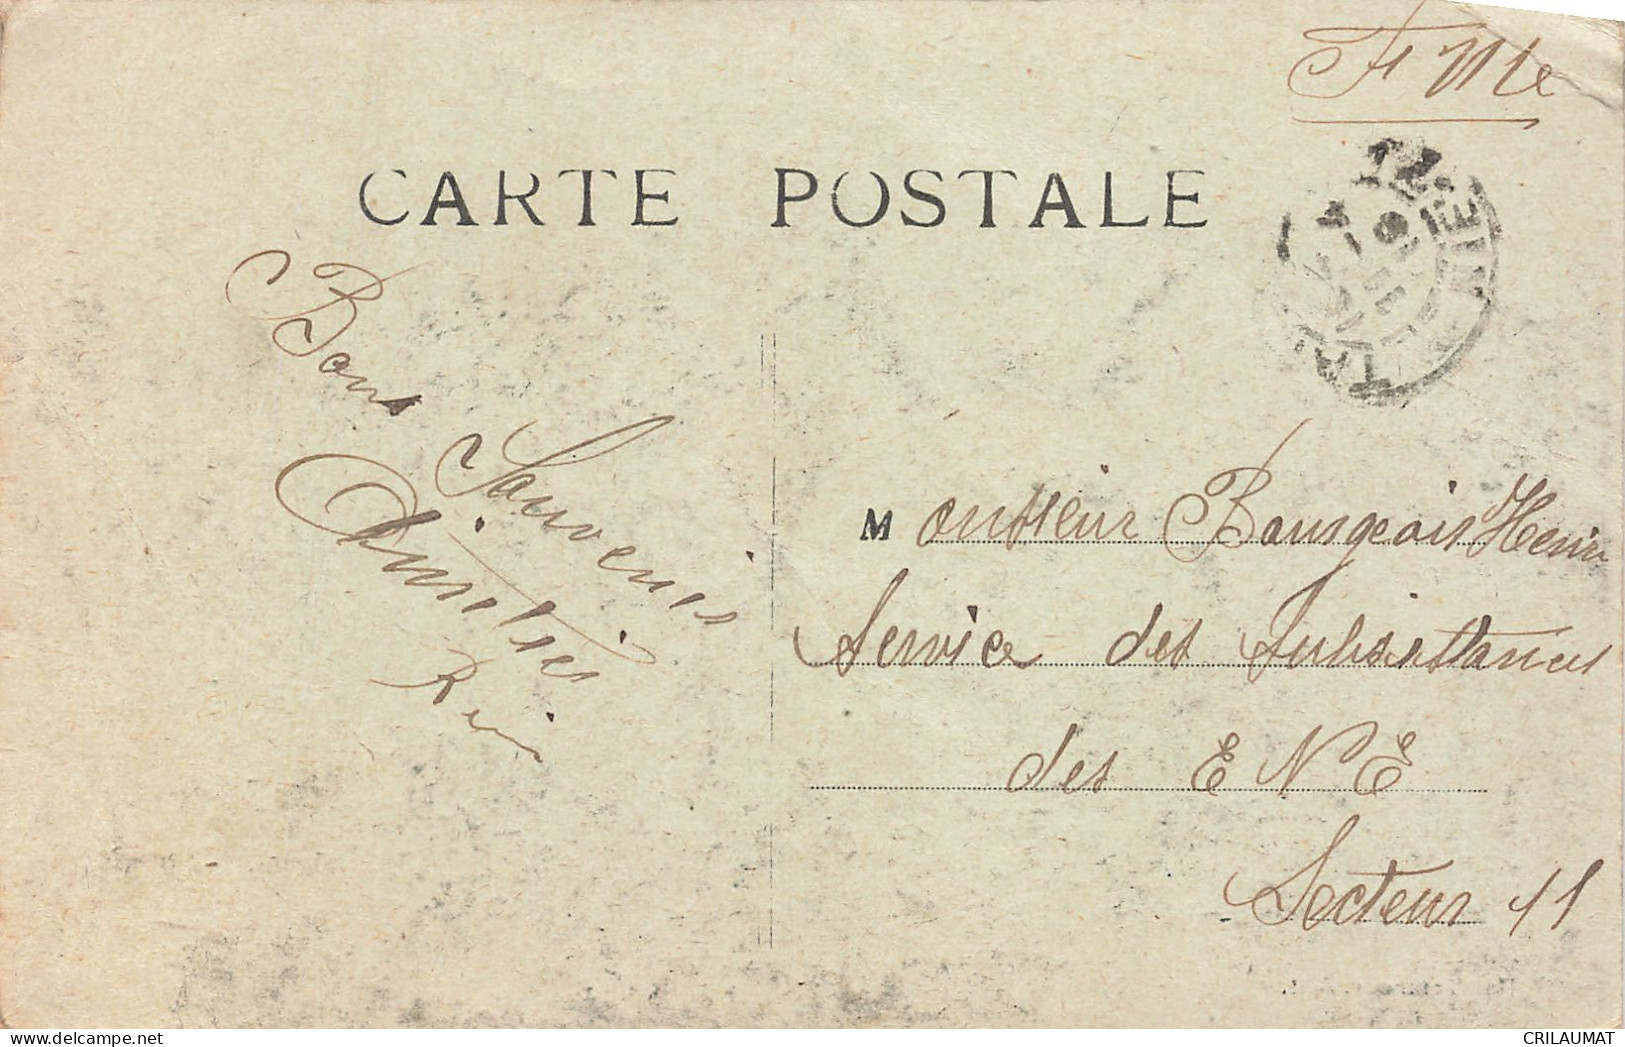 F Mle
CARTE POSTALE
Bons
Souvenirs
Monsieur Bourgeois Henri
Service des Subsistances
des E N E
Secteur 11
CRILAUMAT